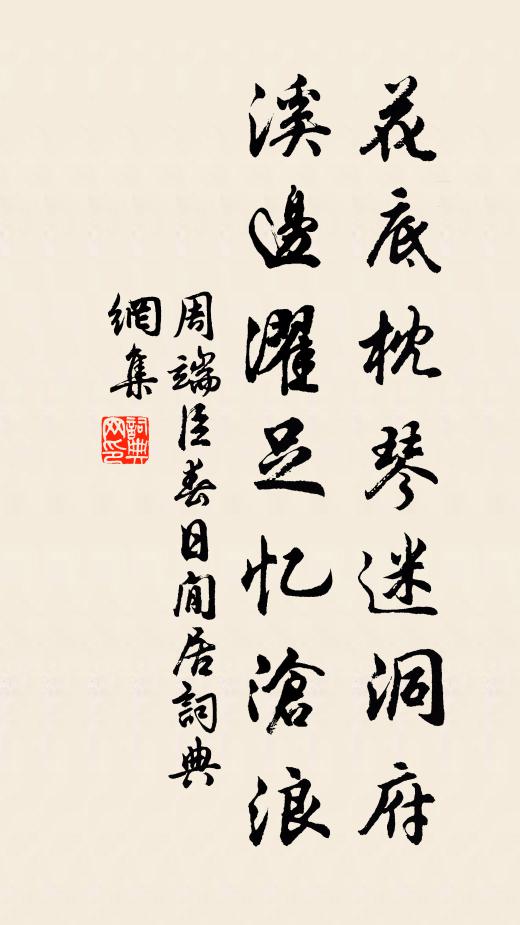 花底枕琴迷洞府
溪邊濯足忆滄浪
周端臣春日閒居詞典
網集
詞典網印